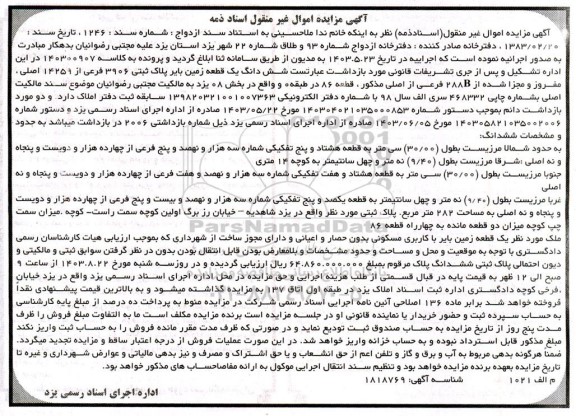 آگهی مزایده اموال غیر منقول اسناد ذمه
آگهی مزایده اموال غیر منقول(اسنادذمه) نظر به اینکه خانم ندا ملاحسینی به استناد سند ازدواج : شماره سند : ۱۲۴۶ ، تاریخ سند :
۱۳۸۳/۰۲/۲۰ ، دفترخانه صادر کننده : دفترخانه ازدواج شماره ۹۳ و طلاق شماره ۲۲ شهر یزد استان یزد علیه مجتبی رضوانیان بدهکار مبادرت
به صدور اجرائیه نموده است که اجرائیه در تاریخ ۱۴۰۳.۵.۲۳ به مدیون از طریق سامانه ثنا ابلاغ گردید و پرونده به کلاسه ۱۴۰۳۰۰۹۰۷ در این
اداره تشکیل و پس از جری تشریفات قانونی مورد بازداشت عبارتست شش دانگ یک قطعه زمین بایر پلاک ثبتی ۳۹۰۶ فرعی از ۱۴۲۵۱ اصلی ،
مفروز و مجزا شده از 288B فرعی از اصلی مذکور ، قطعه ۸۶ در طبقه و واقع در بخش ۰۸ یزد به مالکیت مجتبی رضوانیان موضوع سند مالکیت
اصلی بشماره چاپی ۴۶۸۳۳۲ سری الف سال ۹۸ با شماره دفتر الکترونیکی ۱۳۹۸۲۰۳۲۱۰۰۱۰۰۷۳۶۳ سابقه ثبت دفتر املاک دارد و دو مورد
بازداشت دائم بموجب دستور شماره ۱۴۰۳۰۴۰۲۱۰۳۵۰۰۰۸۵۳ مورخ ۱۴۰۳/۰۵/۲۲ صادره از اداره اجرای اسناد رسمی یزد و دستور شماره
۱۴۰۳۰۵۸۲۱۰۳۵۰۰۲۰۰۶ مورخ ۱۴۰۳/۰۶/۰۵ صادره از اداره اجرای اسناد رسمی یزد ذیل شماره بازداشتی ۲۰۰۶ در بازداشت میباشد به حدود
و مشخصات ششدانگ:
به حدود شمالا مرزیست بطول (۳۰/۰۰) سی متر به قطعه هشتاد و پنج تفکیکی شماره سه هزار و نهصد و پنج فرعی از چهارده هزار و دویست و پنجاه
و نه اصلی :شرقا مرزیست بطول (۹/۴۰) نه متر و چهل سانتیمتر به کوچه ۱۴ متری
جنوبا مرزیست بطول (۳۰/۰۰) سی متر به قطعه هشتاد و هفت تفکیکی شماره سه هزار و نهصد و هفت فرعی از چهارده هزار و دویست و پنجاه و نه
اصلی
غربا مرزیست بطول (۹/۴۰) نه متر و چهل سانتیمتر به قطعه یکصد و پنج تفکیکی شماره سه هزار و نهصد و بیست و پنج فرعی از چهارده هزار و دویست
و پنجاه و نه اصلی به مساحت ۲۸۲ متر مربع. پلاک ثبتی مورد نظر واقع در یزد شاهدیه – خیابان رز برگ اولین کوچه سمت راست– کوچه .میزان سمت
چپ کوچه میزان دو قطعه مانده به چهارراه قطعه ۸۶
ملک مورد نظر یک قطعه زمین بایر با کاربری مسکونی بدون حصار و اعیانی و دارای مجوز ساخت از شهرداری که بموجب ارزیابی هیات کارشناسان رسمی
دادگستری با توجه به موقعیت و محل و مساحت و حدود مشخصات و بلامعارض بودن قابل انتقال بودن بودن در نظر گرفتن سوابق ثبتی و مالکیتی و
دیون احتمالی پلاک ثبتی ششدانگ پلاک مرقوم بمبلغ ۶۴.۸۶۰.۰۰۰.۰۰۰ ریال ارزیابی گردیده و در روزسه شنبه مورخ ۱۴۰۳.۸.۲۲ از ساعت ۹
صبح الی ۱۲ ظهر به قیمت پایه در قبال قسمتی از طلب هزینه اجرایی و حق مزایده در محل اداره اجرای اسناد رسمی یزد واقع در یزد خیابان
.فرخی کوچه دادگستری اداره ثبت اسناد املاک یزد در طبقه اول اتاق ۱۳۷ به مزایده گذاشته میشود و به بالاترین قیمت پیشنهادی نقداً
فروخته خواهد شد برابر ماده ۱۳۶ اصلاحی آئین نامه اجرایی اسناد رسمی شرکت در مزایده منوط به پرداخت ده درصد از مبلغ پایه کارشناسی
به حساب سپرده ثبت و حضور خریدار یا نماینده قانونی او در جلسه مزایده است برنده مزایده مکلف است ما به التفاوت مبلغ فروش را ظرف
مدت پنج روز از تاریخ مزایده به حساب صندوق ثبت تودیع نماید و در صورتی که ظرف مدت مقرر مانده فروش را به حساب ثبت واریز نکند
مبلغ مذکور قابل استرداد نبوده و به حساب خزانه واریز خواهد شد. در این صورت عملیات فروش از درجه اعتبار ساقط و مزایده تجدید میگردد.
ضمنا هرگونه بدهی مربوط به آب و برق و گاز و تلفن اعم از حق انشعاب و یا حق اشتراک و مصرف و نیز بدهی مالیاتی و عوارض شهرداری و غیره تا
تاریخ مزایده بعهده برنده مزایده خواهد بود و تنظیم سند انتقال اجرایی موکول به ارائه مفاصاحساب های مذکور خواهد بود.
م الف ۱۰۲۱ شناسه آگهی: ۱۸۱۸۷۶۹
اداره اجرای اسناد رسمی یزد